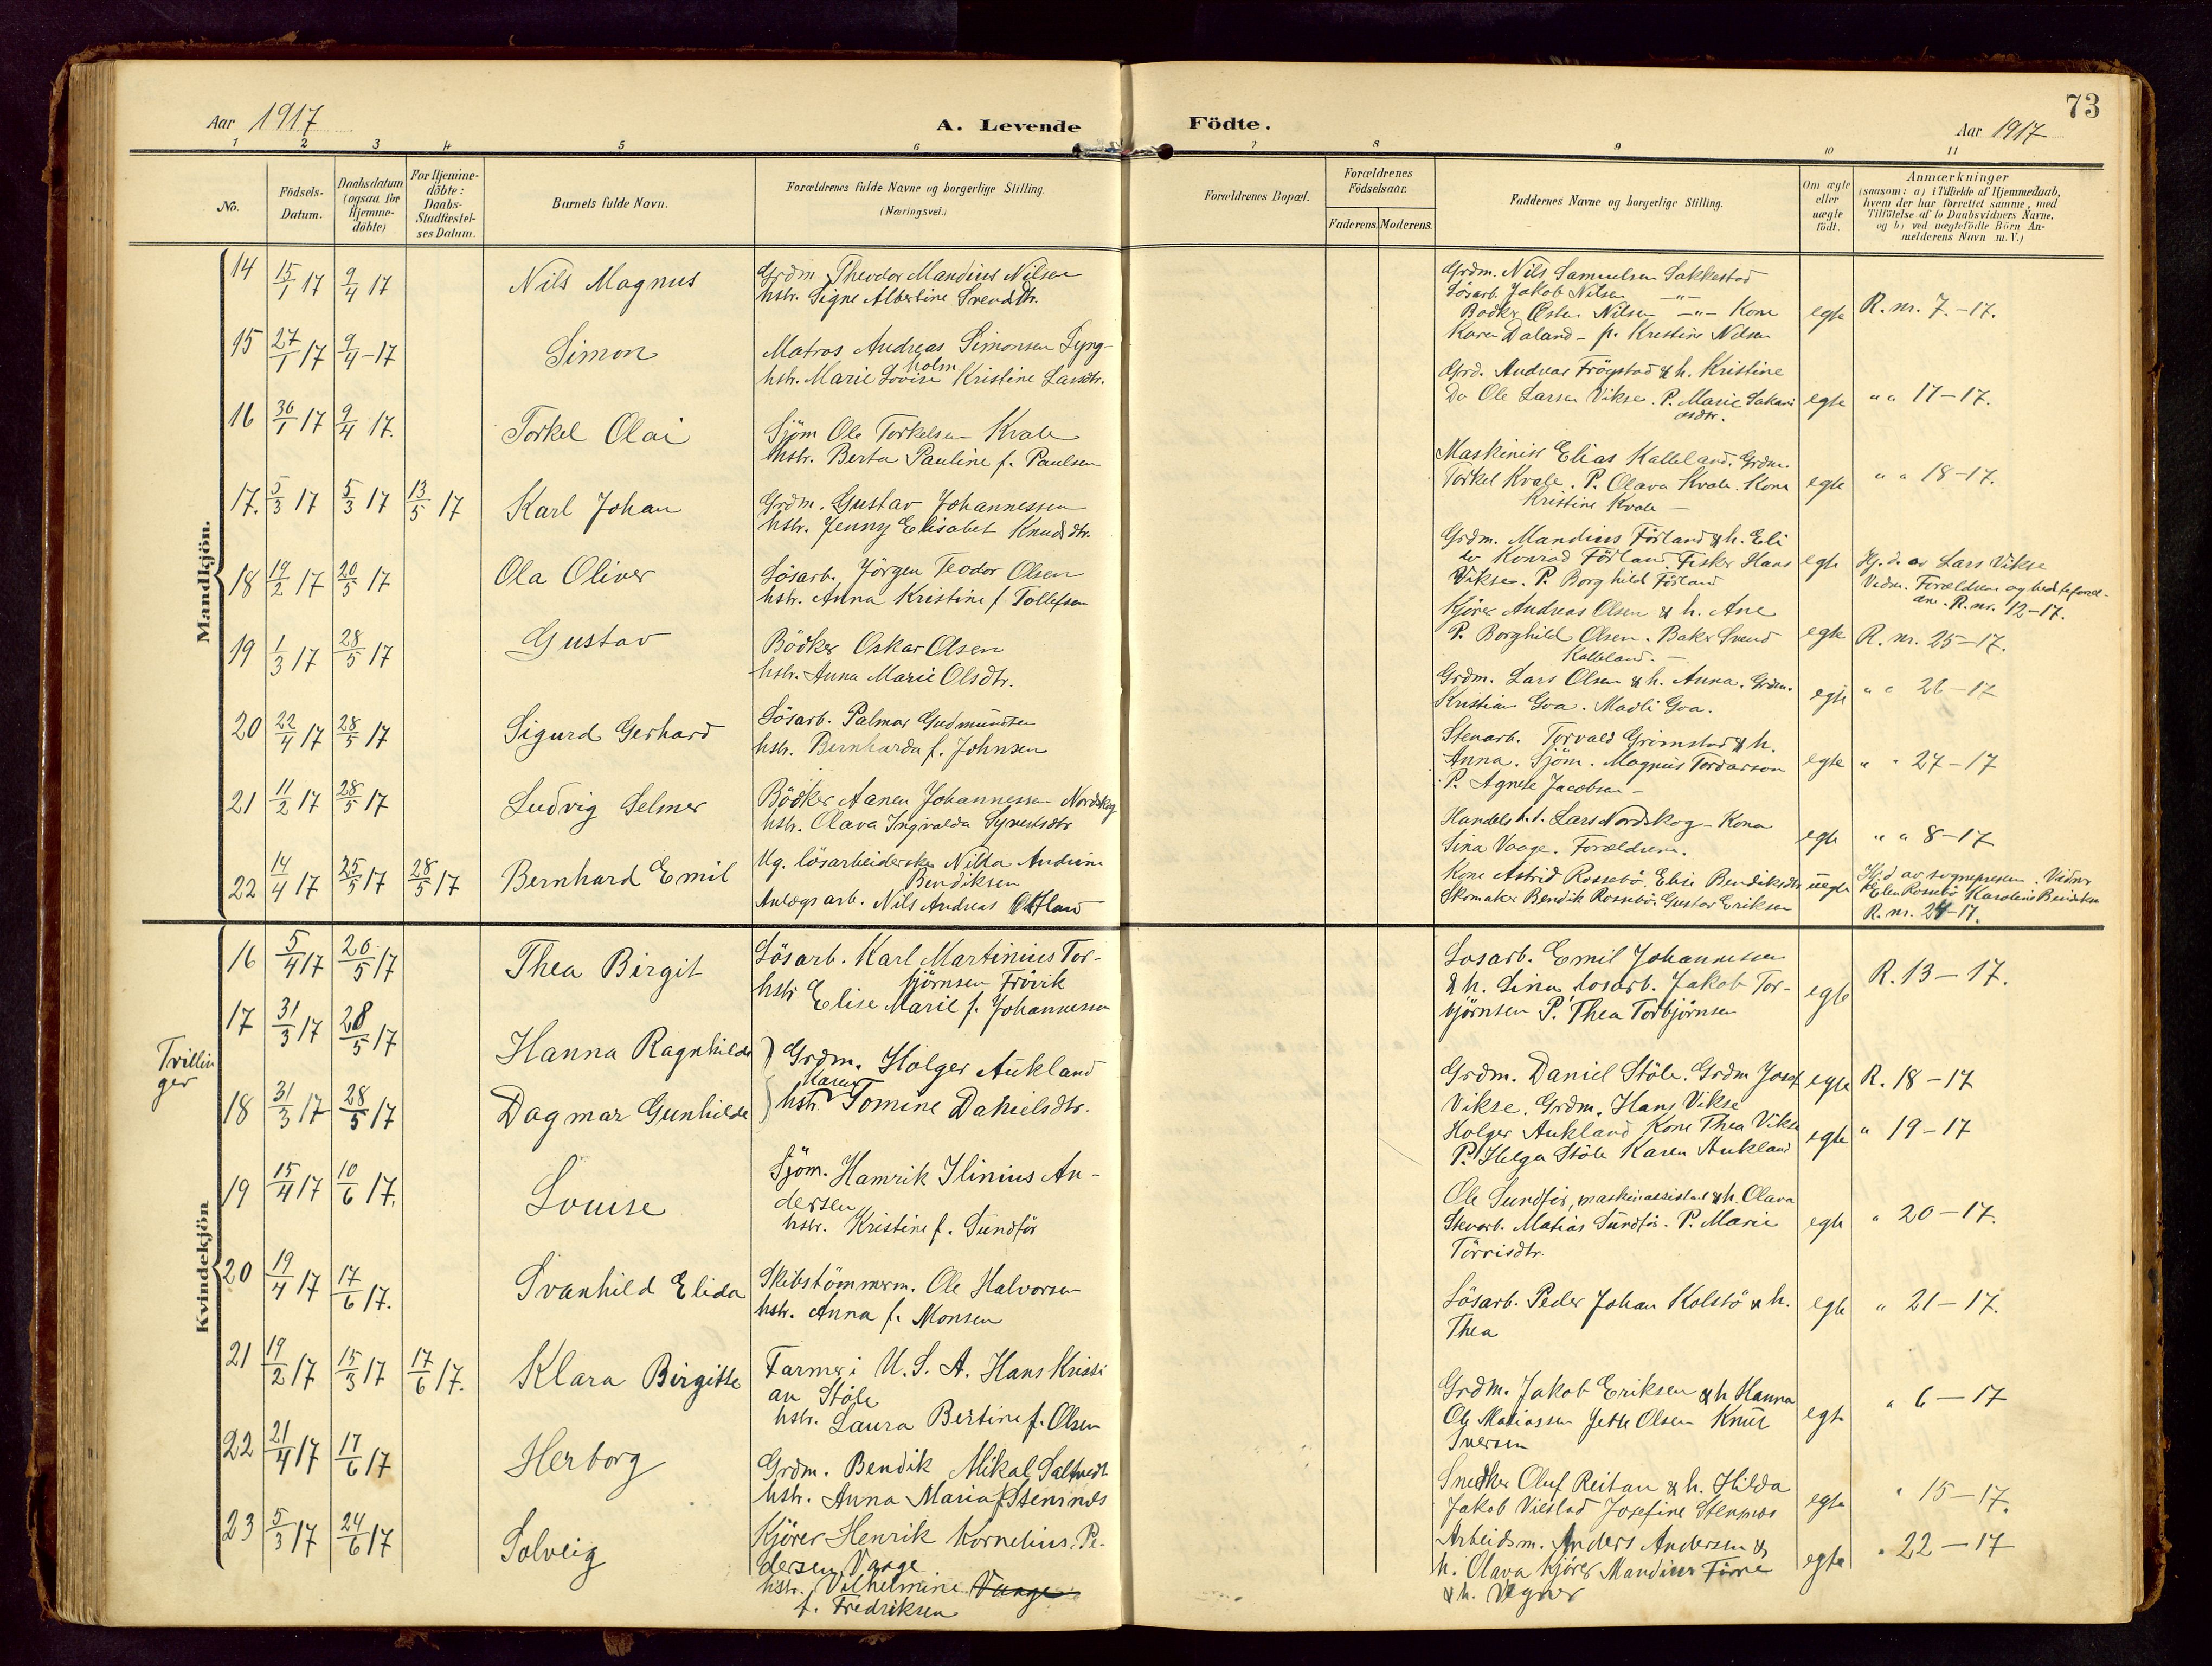 Aar 1917
A. Levende
Födte.
73
Aar 1917
1 2 3 4 5 6 7 8 9 10 11
No.
Födsels-
Datum.
Daabsdatum
(ogsaa for
Hjemme-
döbte)
For Hjemme-
döbte:
Daabs-
Stadfæstel-
ses Datum.
Barnets fulde Navn.
Forældrenes fulde Navne og borgerlige Stilling.
(Næringsvei.)
Forældrenes Bopæl.
Forældrenes
Födselsaar.
Faderens. Moderens.
Faddernes Navne og borgerlige Stilling.
Om ægte
eller
uægte
født.
Anmærkninger
(saasom: a) i Tilfælde af Hjemmedaab,
hvem der har forrettet samme, med
Tilföielse af to Daabsvidners Navne.
og b) ved uegtefödte Börn An-
melderens Navn m. V.)
Mandkjön.
14 15/1 17 9/4 17 Nils Magnus
Grdm. Theodor Mandius Nilsen
hstr. Signe Albertine Svendsdtr.
Grdm. Nils Samuelsen Sakkestad
Lösarb. Jakob Nilsen -"-
Bödker Østen Nilsen -"- Kone
Karen Daland - p. Kristine Nilsen
egte R. nr. 7.-17.
15 27/1 17 9/4-17 Simon
Matros Andreas Simonsen Lyng-
holm
hstr. Marie Lovise Kristine Larsdtr.
Grd. Andreas Frögstad & h. Kristine
Do Ole Larsen Vikse. P. Marie Sakari
asdtr.
egte " " 17-17.
16 30/1 17 9/4 17. Torkel Olai
Sjöm Ole Torkelsen Kvale
hstr. Berta Pauline f. Paulsen
Maskinist Elias Kalleland. Grdm.
Torkel Kvale. P. Olava Kvale. Kone
Kristine Kvale -
egte " " 18-17.
17. 5/3 17 5/3 17 13/5 17 Karl Johan
Grdm. Gustav Johannessen
hstr. Jenny Elisabet Knudsdtr.
Grdm. Mandius Förland & h. Eli
Konrad Förland. Fisker Hans
Vikse. P. Borghild Förland
egte Hj. d. av Lars Vikse
Vidn. Forældrene og bedsteforel-
dre. R. nr. 12-17.
18 19/2 17 20/5 17 Ola Oliver
Lösarb. Jörgen Teodor Olsen
hstr. Anna Kristine f Tollefsen
Kjörer Andreas Olsen & h. Ane
P. Borghild Olsen. Baker Svend
Kalleland. -
egte R. nr. 25-17.
19 1/3 17 28/5 17 Gustav
Bödker Oskar Olsen
hstr. Anna Marie Olsdtr.
Grdm. Lars Olsen & h. Anna. Grdm.
Kristian Goa. Madli Goa.
egte " " 26-17
20 22/4 17 28/5 17 Sigurd Gerhard
Lösarb. Palmar Gudmundsen
hstr. Bernharda f. Johnsen
Stenarb. Torvald Grimstad & h.
Anna. Sjöm. Magnus Tordarson
P. Agnete Jacobsen -
egte " " 27-17
21 11/2 17 28/5 17 Ludvig Selmer
Bödker Aanen Johannessen Nordskog
hstr. Olava Ingvalda Syvertsdtr
Handelsb.t. Lars Nordskog - Kona
Sina Vaage. Forældrene.
egte " " 8-17
22 14/4 17 25/5 17 28/5 17 Bernhard Emil
Ug. lösarbeiderske Nilda Andrine
Bendiksen
Anlægsarb. Nils Andreas Østland
Kone Astrid Rossebö. Elise Bendiksdtr
Skomaker Bendik Rossebö. Gustav Eriksen
uegte Hj.d av sognepresten. Vidner
Elen Rossebö Karoline Bendiksen
R. nr. 24-17.
Kvindekjön
16 5/4 17 20/5 17 Thea Birgit
Lösarb. Karl Martinius Tor-
björnsen Frövik
hstr Elise Marie f. Johannessen
Losarb. Emil Johannessen
& h. Sina, losarb. Jakob Tor-
björnsen P. Thea Torbjörnsen
egte R. 13-17.
Trillin
ger
17 31/3 17 28/5 17 Hanna Ragnhilde
18 31/3 17 28/5 17 Dagmar Gunhilde
Grdm. Holger Aukland
Karen
hstr. Tomine Danielsdtr.
Grdm. Daniel Stöle. Grdm Josef
Vikse. Grdm. Hans Vikse
egte R. 18-17
Holger Aukland Kone Thea Vikse
P. Helga Stöle Karen Aukland
egte " 19-17
19 15/4 17 10/6 17. Louise
Sjöm. Hamrik Ilinius An-
dersen
hstr. Kristine f. Sundför
Ole Sundför, maskinassistent & h. Olava
Stenarb. Matias Sundför. P. Marie
Törrisdtr.
egte " 20-17.
20 19/4 17 17/6 17. Svanhild Elida
Skibstömmerm. Ole Halvorsen
hstr. Anna f. Monsen
Lösarb. Peder Johan Kolstö & h.
Thea
egte " 21-17.
21 19/2 17 15/3 17 17/6 17. Klara Birgitte
Farmer i U.S.A. Hans Kristi
an Stöle
hstr. Laura Bertine f. Olsen
Grdm. Jakob Eriksen & h Hanna
Ole Matiassen Jette Olsen Knut
Iversen
egte " 6-17
22 21/4 17 17/6 17 Herborg
Grdm. Bendik Mikal Saltvedt
hstr. Anna Maria f. Stensnes
Snedker Oluf Reitan & h. Hilda
Jakob Viestad Josefine Stensnes
egte " 15-17.
23 5/3 17 24/6 17 Solveig
Kjörer Henrik Kornelius Pe-
dersen Vaage
hstr. Vilhelmine Vaage
f. Fredriksen
Arbeidsm. Anders Andersen &
h. Olava Kjörer Mandius Förre
& h. Vegner
egte " 22-17